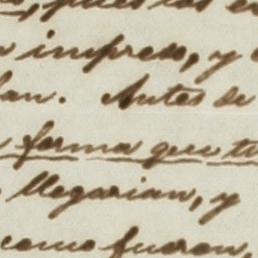 pues los
impreso, y
an. Antes de
forma que tu
llegarian, y
como fueron,